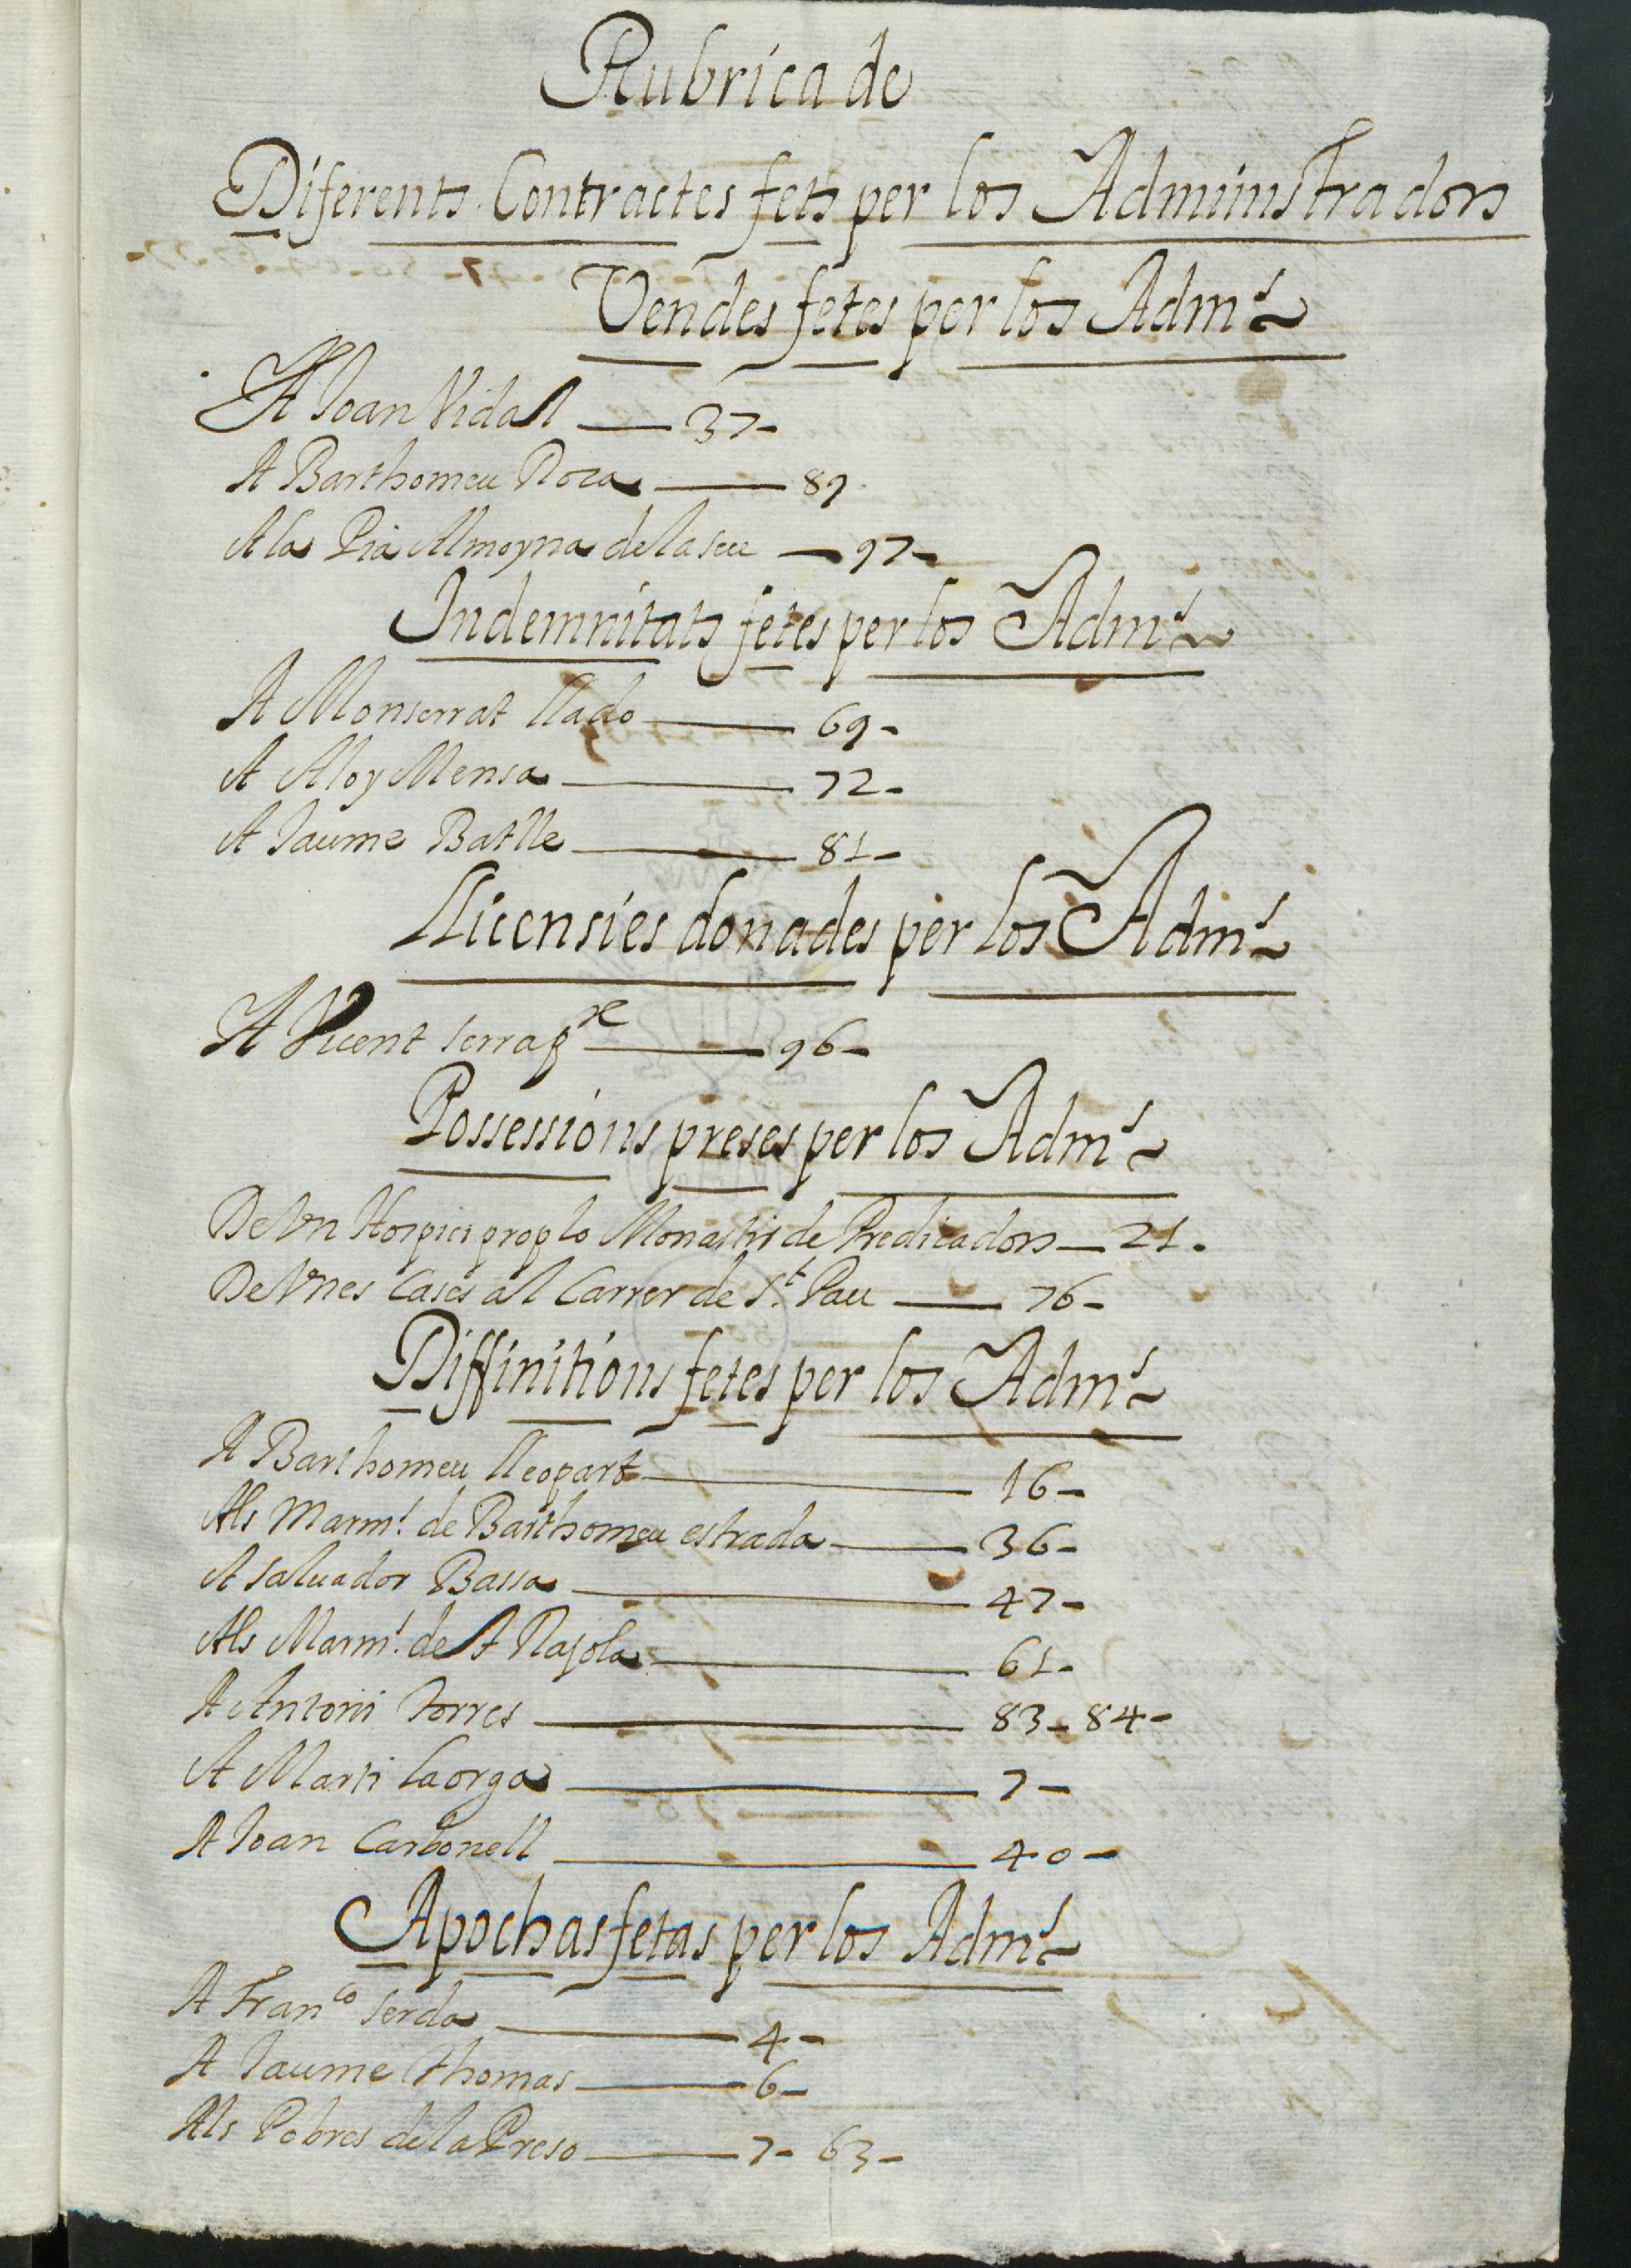 Rubrica de
Diferents Contractes fets per los Administradors
Vendes fetes per los Adm.rs
A Joan Vidal — 37-
A Barthomeu Roca — 89
A la Pia Almoyna de la seu — 97-
Indemnitats fetes per los Adm.rs
A Monserrat llado — 69-
A Aloy Mensa — 72-
A Jaume Batlle — 81-
LLicensies donades per los Adm.rs
A Vicent serra pre — 96-
Possessions preses per los Adm.rs
De Vn Hospici prop lo Monastir de Predicadors — 21.
De Vnes Cases al Carrer de St. Pau — 76-
Diffinitions fetes per los Adm.rs
A Barthomeu lleopart — 16-
Als Marm.s de Barthomeu estrada — 36-
A saluador Bassa — 47-
Als Marm.s de A Rajola — 61-
A Antoni torres — 83-84-
A Marti laorga — 7-
A Joan Carbonell — 40-
Apochas fetas per los Adm.rs
A Fran.co serda — 4-
A Jaume thomas — 6-
Als Pobres de la Preso — 7- 63-